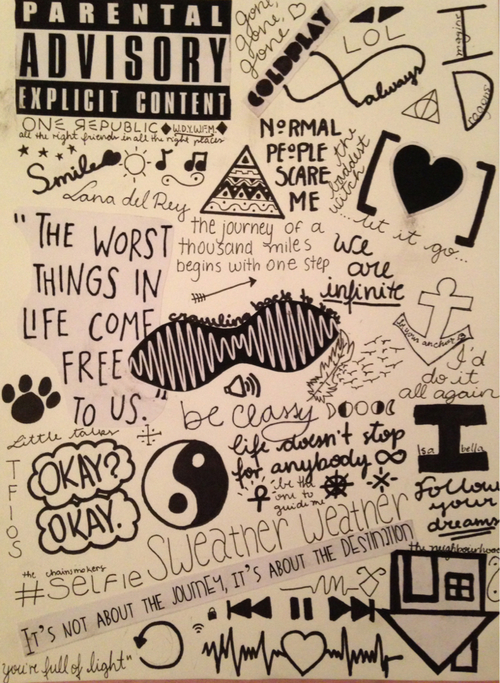 PARENTAL
ADVISORY
EXPLICIT CONTENT
Gone,
Gone,
Gone
COLDPLAY
LOL
always
imagine
Dragons
ONE REPUBLIC
W.D.Y.W.F.M.
all the right friends in all the right places
Smile
Lana del Rey
NORMAL
PEOPLE
SCARE
ME
the
baddest
witch
...let it go...
"THE WORST
THINGS IN
LIFE COME
FREE
TO US."
the journey of a
thousand miles
begins with one step
we
are
infinite
crawling back to you
be your anchor
I'd
do it
all again
be classy
Little talks
life doesn't stop
for anybody
be the
one to
guide me
I
Isa bella
Follow
your
dreams
TFIOS
OKAY?
OKAY.
Sweather Weather
the neighbourhood
the chainsmokers
#SELFIE
IT'S NOT ABOUT THE JOURNEY, IT'S ABOUT THE DESTINATION
you're full of light"